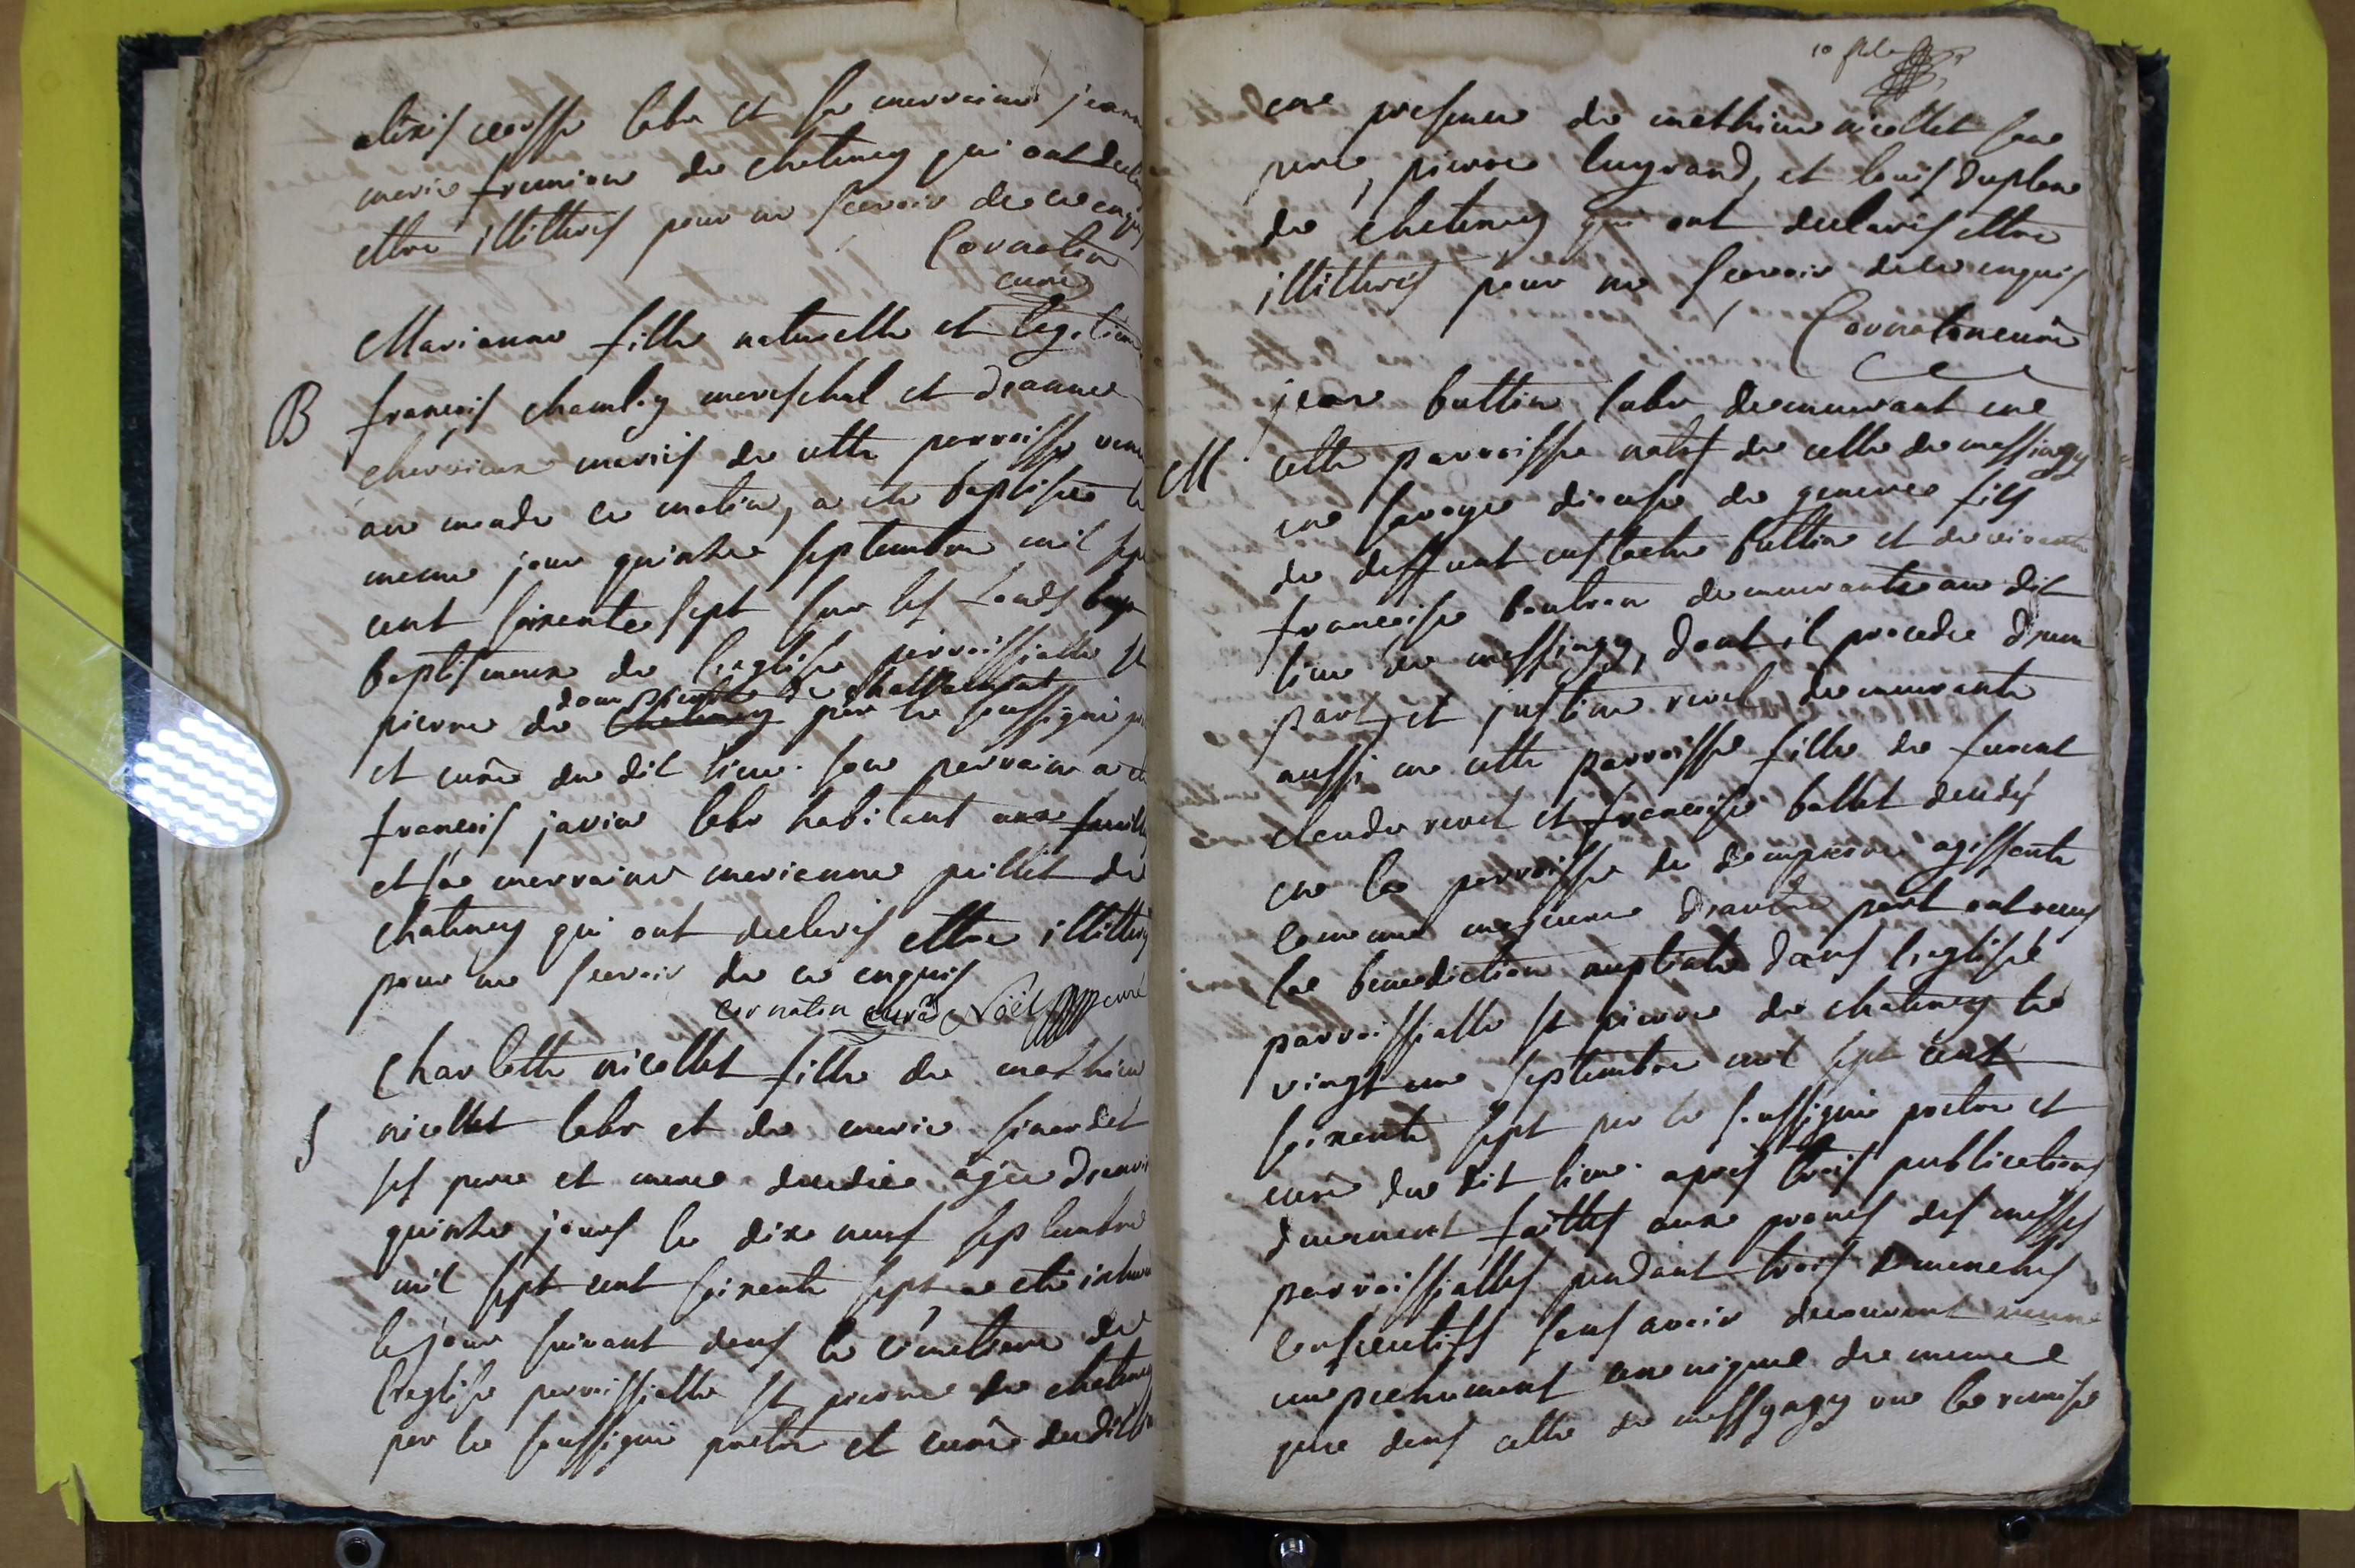 alexis labr et sa marraine jeanne
marie de chatenay qui ont declar
ettre illitterés pour ne scavoir de ce enquis
Cornaton
curé
Marianne fille naturelle et legitime
B françois marechal et d'anne
mariés de cette parroisse venue
au monde ce matin, a eté baptisée le
meme jour quinzé septembre mil sept
cent soixante sept sur les fonds
baptismeaux de l'eglise parroissialle st
pierre de chatenay par le soussigné
et curé du dit lieu. son parrain a eté
françois javin labr habitant
et sa marraine marienne pillet de
chatenay qui ont declarés ettre illitterés
pour ne scavoir de ce enquis
cornaton curé Noël curé
Charlotte nicollet fille de mathieu
S nicollet labr et de marie
ses pere et mere decedée agée d'environ
quinze jours le dixe neuf septembre
mil sept cent soixante sept a eté inhumé
le jour suivant dans le cimetiere de
l'eglise parroissialle st pierre de chatenay
par le soussigné pretre et curé du dit lieu
en presence de mathieu nicollet son
pere, pierre lugrand, et louis
de chatenay qui ont declarés ettre
illitterés pour ne scavoir de ce enquis
Cornaton curé
jean buttin labr demeurant en
M cette parroisse natif de celle de messingy
en savoye diocese de geneve fils
de deffunt eustache buttin et de vivante
françoise demeurante au dit
lieu de messingy, dont il procede d'une
part, et justine revel demeurante
aussi en cette parroisse fille de furent
claude revel et françoise ballet decedés
en la parroisse de dompierre agissante
comme majeure d'autre part ont reçus
la benediction nuptiale dans l'eglise
parroissialle st pierre de chatenay le
vingt un septembre mil sept cent
soixente sept par le soussigné pretre et
curé du dit lieu. après trois publications
duement faittes aux pronés des messes
parroissialles pendant trois dimenches
consecutifs sans avoir decouvert aucun
empechement canonique de meme
que dans celle de messyngy vu la remise